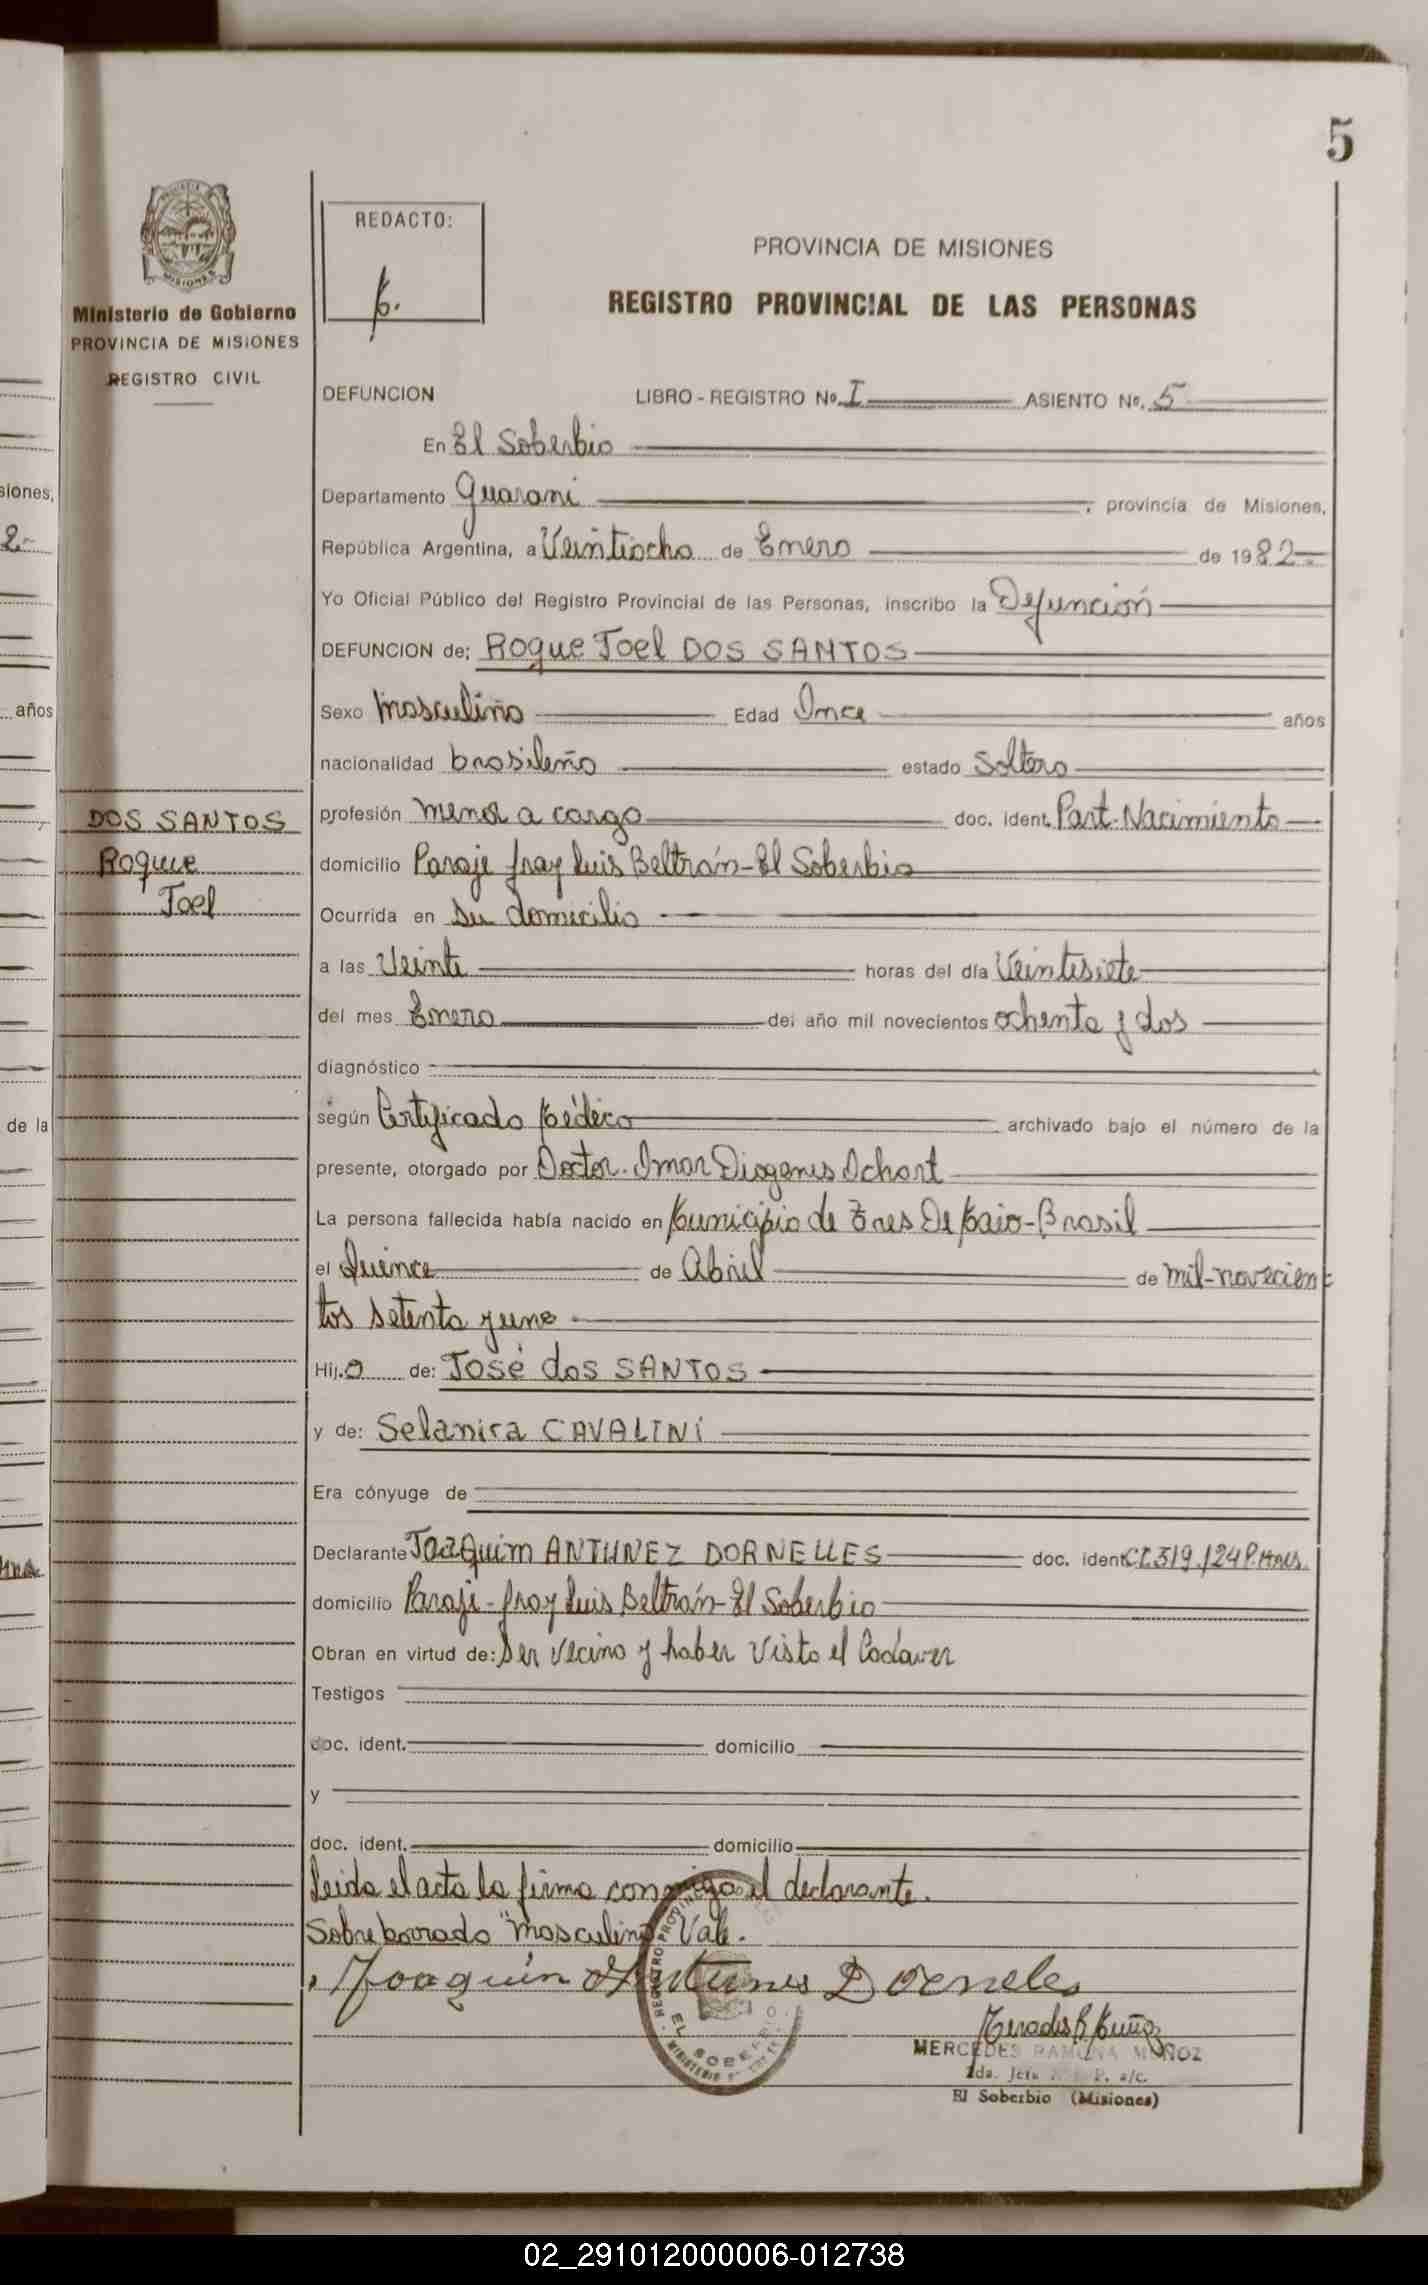 5
REDACTO:
PROVINCIA DE MISIONES
REGISTRO PROVINCIAL DE LAS PERSONAS
Ministerio de Gobierno
PROVINCIA DE MISIONES
REGISTRO CIVIL
DEFUNCION LIBRO - REGISTRO Nº I ASIENTO Nº. 5
En El Soberbio
Departamento Guarani, provincia de Misiones,
República Argentina, a Veintiocho de Enero de 1982
Yo Oficial Público del Registro Provincial de las Personas, inscribo la Defunción
DEFUNCION de: Roque Joel DOS SANTOS
Sexo Masculino Edad Once años
nacionalidad brasileño estado Soltero
profesión menor a cargo doc. ident. Part. Nacimiento
domicilio Paraje fray Luis Beltrán - El Soberbio
Ocurrida en su domicilio
a las Veinte horas del día Veintisiete
del mes Enero del año mil novecientos ochenta y dos
diagnóstico
según Certificado Médico archivado bajo el número de la
presente, otorgado por Doctor. Omar Diogenes Ochart
La persona fallecida había nacido en Municipio de Tres De Maio - Brasil
el Quince de Abril de mil novecien
tos setenta y uno
Hijo de: José dos SANTOS
y de: Selanira CAVALINI
Era cónyuge de
Declarante Joaquim ANTUNEZ DORNELLES doc. ident. C.I. 319.124 P. Mnes.
domicilio Paraje - fray Luis Beltrán - El Soberbio
Obran en virtud de: Ser vecino y haber visto el Cadaver
Testigos
doc. ident. domicilio
y
doc. ident. domicilio
Leida el acta la firma conmigo el declarante.
Sobreborrado "Masculino" Vale.
Joaquín Antunes Dorneles
MERCEDES RAMONA MUÑOZ
El Soberbio (Misiones)
DOS SANTOS
Roque
Joel
siones,
2-
años
de la
02_291012000006-012738